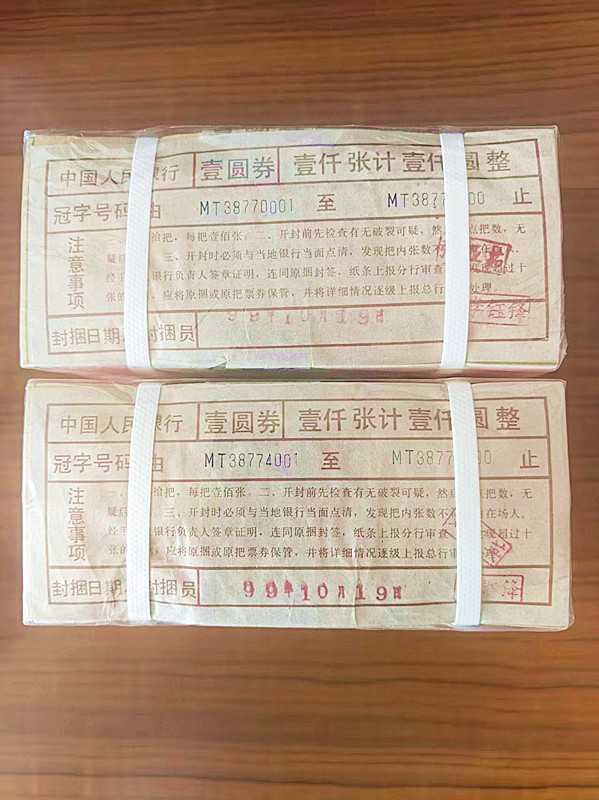 中国人民银行 壹圆券 壹仟张计壹仟圆整
冠字号码由 MT38770001 至 MT3877 00 止
注意事项
拾把，每把壹佰张。二、开封前先检查有无破裂可疑，然 点把数，无
疑后 三、开封时必须与当地银行当面点清，发现把内张数 在
经 银行负责人签章证明，连同原捆封签，纸条上报分行审查 超过十
张的 ，应将原捆或原把票券保管，并将详细情况逐级上报总行 处理。
封捆日期 封捆员 99年10月19日
李钰锋
中国人民银行 壹圆券 壹仟张计壹仟圆整
冠字号码由 MT38774001 至 MT3877 00 止
注意事项
一、 拾把，每把壹佰张。二、开封前先检查有无破裂可疑，然后 点把数，无
疑后 三、开封时必须与当地银行当面点清，发现把内张数不 在场人、
经手 银行负责人签章证明，连同原捆封签，纸条上报分行审 超过十
张的 ，应将原捆或原把票券保管，并将详细情况逐级上报总行 处理。
封捆日期 封捆员 99年10月19日
锋